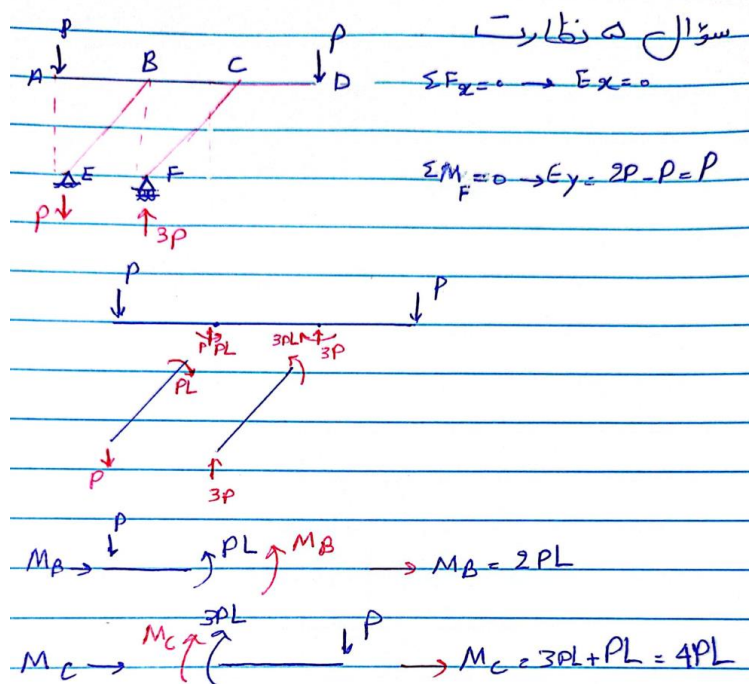 سؤال ۵ نظارت
P P
A B C D ΣFx=0 → Ex=0
E F ΣM_F=0 → Ey=2P-P=P
P 3P
P P
P PL 3PL 3P
PL
P 3P
P
M_B → PL M_B → M_B=2PL
3PL
M_C → M_C P → M_C=3PL+PL=4PL